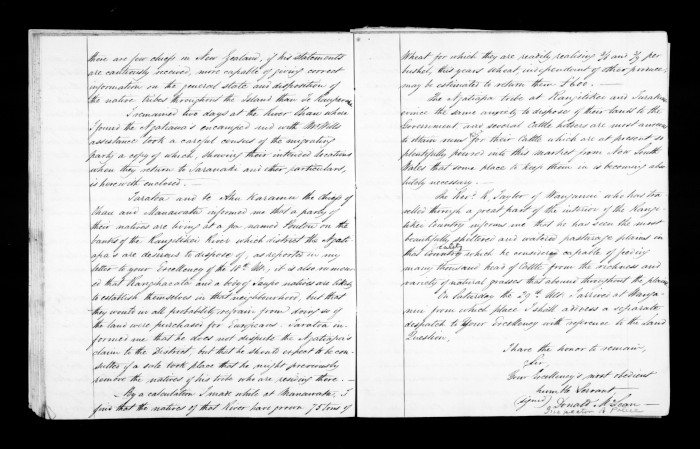 there are few chiefs in New Zealand, if his statements
are cautiously received, more capable of giving correct
information on the general state and disposition of
the native tribes throughout the Island than Te Rauparaha
I remained two days at the River Ohau where
I found the Ngatiawa's encamped and with Mr Wills
assistance took a careful census of the migrating
party a copy of which, shewing their intended locations
when they return to Taranaki and other particulars,
is herewith enclosed. —
Taratoa and te Ahu Karamu the chiefs of
Ohau and Manawatu informed me that a party of
their natives are living at a pa named Poutou on the
banks of the Rangitikei River which district the Ngati
apa's are desirous to dispose of, as reported in my
letter to your Excellency of the Ult. it is also rumour
ed that Rangihaeata and a body of Taupo natives are likely
to establish themselves in that neighbourhood, but that
they would in all probability refrain from doing so if
the land were purchased for Europeans. Taratoa in-
formed me that he does not dispute the Ngatiapa's
claim to the District, but that he should expect to be con-
sulted if a sale took place that he might previously
remove the natives of his tribe who are residing there. —
By a calculation I made while at Manawatu, I
find that the natives of that River have grown 75 tons of
Wheat for which they are readily realising and per
bushel, this years wheat, independent of other produce,
may be estimated to return them £600. —
The Ngatiapa tribe at Rangitikei and Turakina
evince the same anxiety to dispose of their land to the
Government and several Cattle holders are most anxious
to obtain runs for their Cattle which are at present so
plentifully poured into this market from New South
Wales that some place to keep them in is becoming abso
lutely necessary. —
The Revd. R. Taylor of Wanganui who has tra
velled through a great part of the interior of the Rangi
tikei Country informs me that he has seen the most
beautifully sheltered and watered pasturage plains in
that locality which he considers capable of feeding
many thousand head of Cattle from the richness and
variety of natural grasses that abound throughout the plains
On Saturday the 29th. Ult. I arrived at Wanga-
nui from which place I shall address a separate
despatch to Your Excellency with reference to the land
Question.
I have the honor to remain,
Sir
Your Excellency's most obedient
humble Servant
(signed) Donald McLean —
Inspector of Police